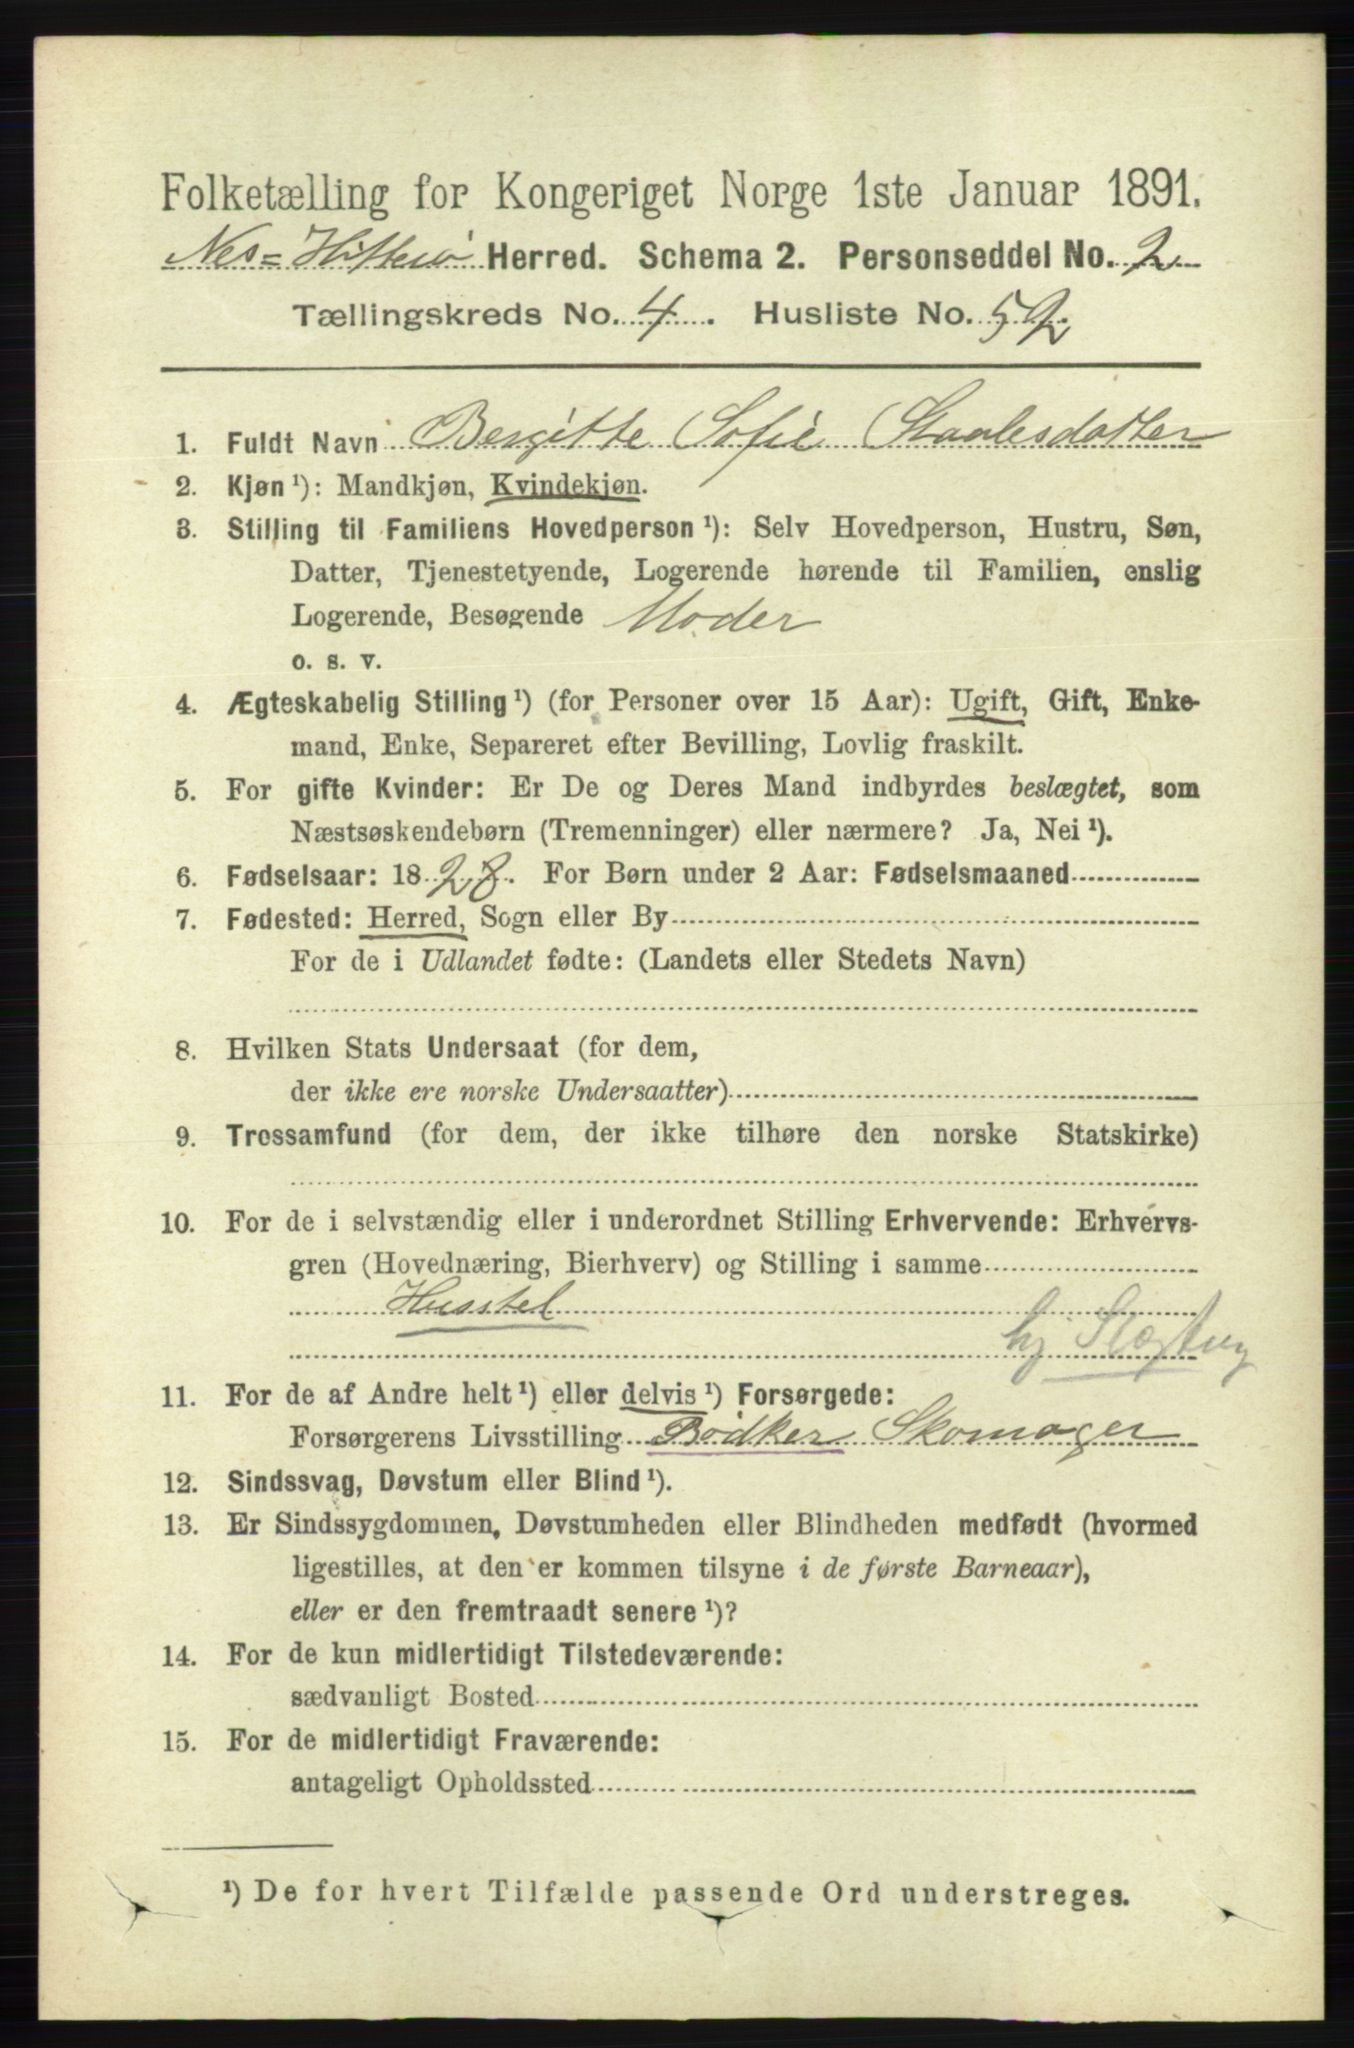 Folketælling for Kongeriget Norge 1ste Januar 1891.
Nes=Hitterø Herred. Schema 2. Personseddel No. 2
Tællingskreds No. 4. Husliste No. 52
1. Fuldt Navn Bergitte Sofie Staalesdatter
2. Kjøn ¹): Mandkjøn, Kvindekjøn.
3. Stilling til Familiens Hovedperson ¹): Selv Hovedperson, Hustru, Søn,
Datter, Tjenestetyende, Logerende hørende til Familien, enslig
Logerende, Besøgende Moder
o. s. v.
4. Ægteskabelig Stilling ¹) (for Personer over 15 Aar): Ugift, Gift, Enke-
mand, Enke, Separeret efter Bevilling, Lovlig fraskilt.
5. For gifte Kvinder: Er De og Deres Mand indbyrdes beslægtet, som
Næstsøskendebørn (Tremenninger) eller nærmere? Ja, Nei ¹).
6. Fødselsaar: 1828. For Børn under 2 Aar: Fødselsmaaned
7. Fødested: Herred, Sogn eller By
For de i Udlandet fødte: (Landets eller Stedets Navn)
8. Hvilken Stats Undersaat (for dem,
der ikke ere norske Undersaatter)
9. Trossamfund (for dem, der ikke tilhøre den norske Statskirke)
10. For de i selvstændig eller i underordnet Stilling Erhvervende: Erhvervs-
gren (Hovednæring, Bierhverv) og Stilling i samme
Husstel
hj Slægtng
11. For de af Andre helt ¹) eller delvis ¹) Forsørgede:
Forsørgerens Livsstilling Bødker Skomager
12. Sindssvag, Døvstum eller Blind ¹).
13. Er Sindssygdommen, Døvstumheden eller Blindheden medfødt (hvormed
ligestilles, at den er kommen tilsyne i de første Barneaar),
eller er den fremtraadt senere ¹)?
14. For de kun midlertidigt Tilstedeværende:
sædvanligt Bosted
15. For de midlertidigt Fraværende:
antageligt Opholdssted
¹) De for hvert Tilfælde passende Ord understreges.